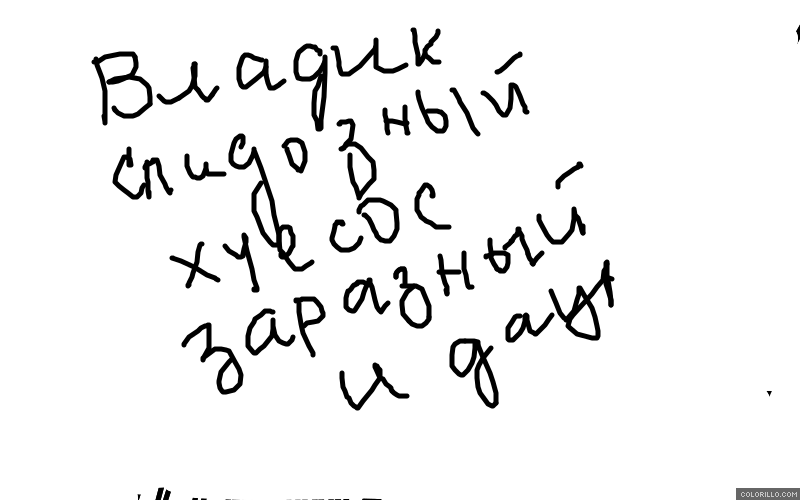 Владик
спидозный
хуесос
заразный
и даун
COLORILLO.COM